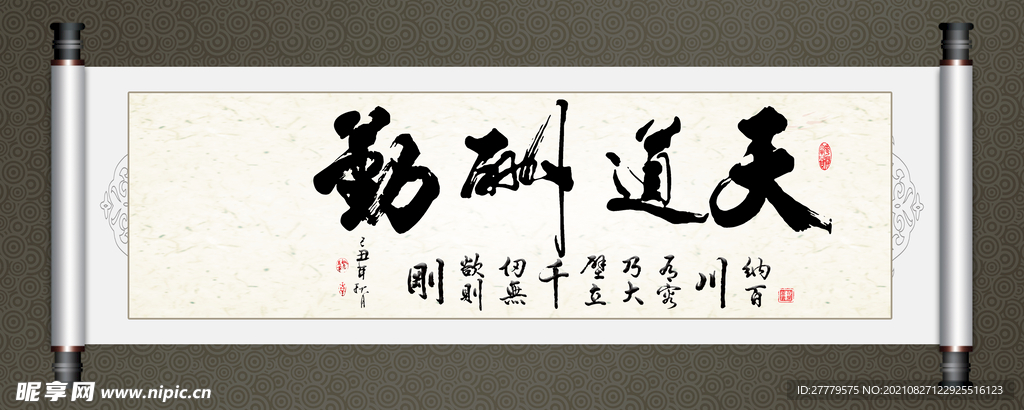 天道酬勤
納百
川
有容
乃大
壁立
千
仞無
欲則
剛
己丑年秋月
昵享网 www.nipic.cn
ID:27779575 NO:20210827122925516123